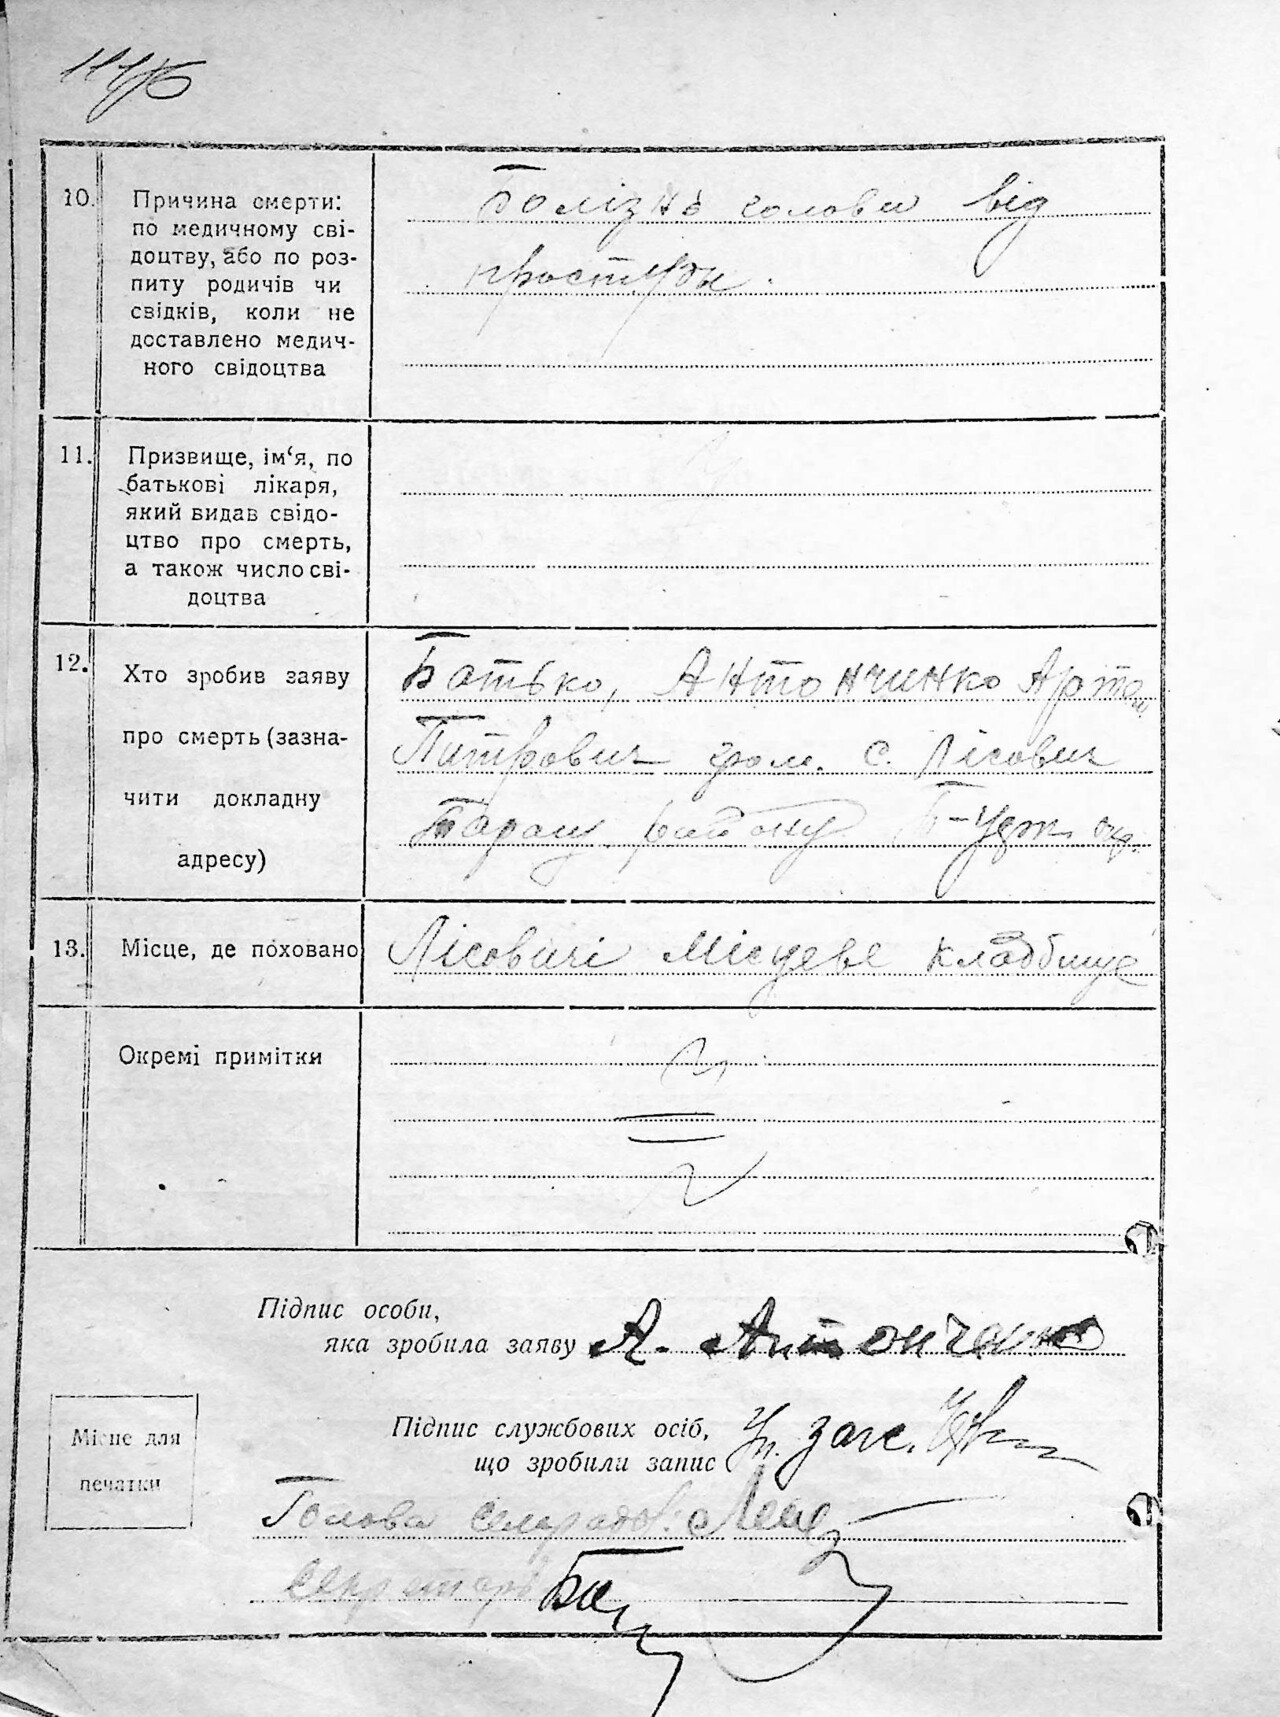 10. Причина смерти:
по медичному сві-
доцтву, або по роз-
питу родичів чи
свідків, коли не
доставлено медич-
ного свідоцтва
Болізнь голови від
простуди.
11. Призвище, ім‘я, по
батькові лікаря,
який видав свідо-
цтво про смерть,
а також число сві-
доцтва
12. Хто зробив заяву
про смерть (зазна-
чити докладну
адресу)
Батько, Антончинко Артем
Питрович гром. с. Лісович
Таращ. району Б-
13. Місце, де поховано
Лісовичі місцеве кладбище
Окремі примітки
Підпис особи,
яка зробила заяву А. Антонченко
Підпис службових осіб,
що зробили запис Уп. загс.
Місце для
печатки
Голова сельради:
Секретарь